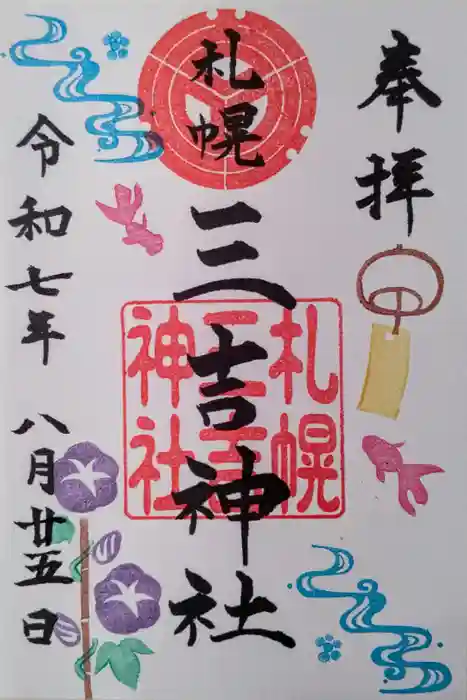 奉拝
札幌
三吉神社
札幌
三吉
神社
令和七年八月廿五日